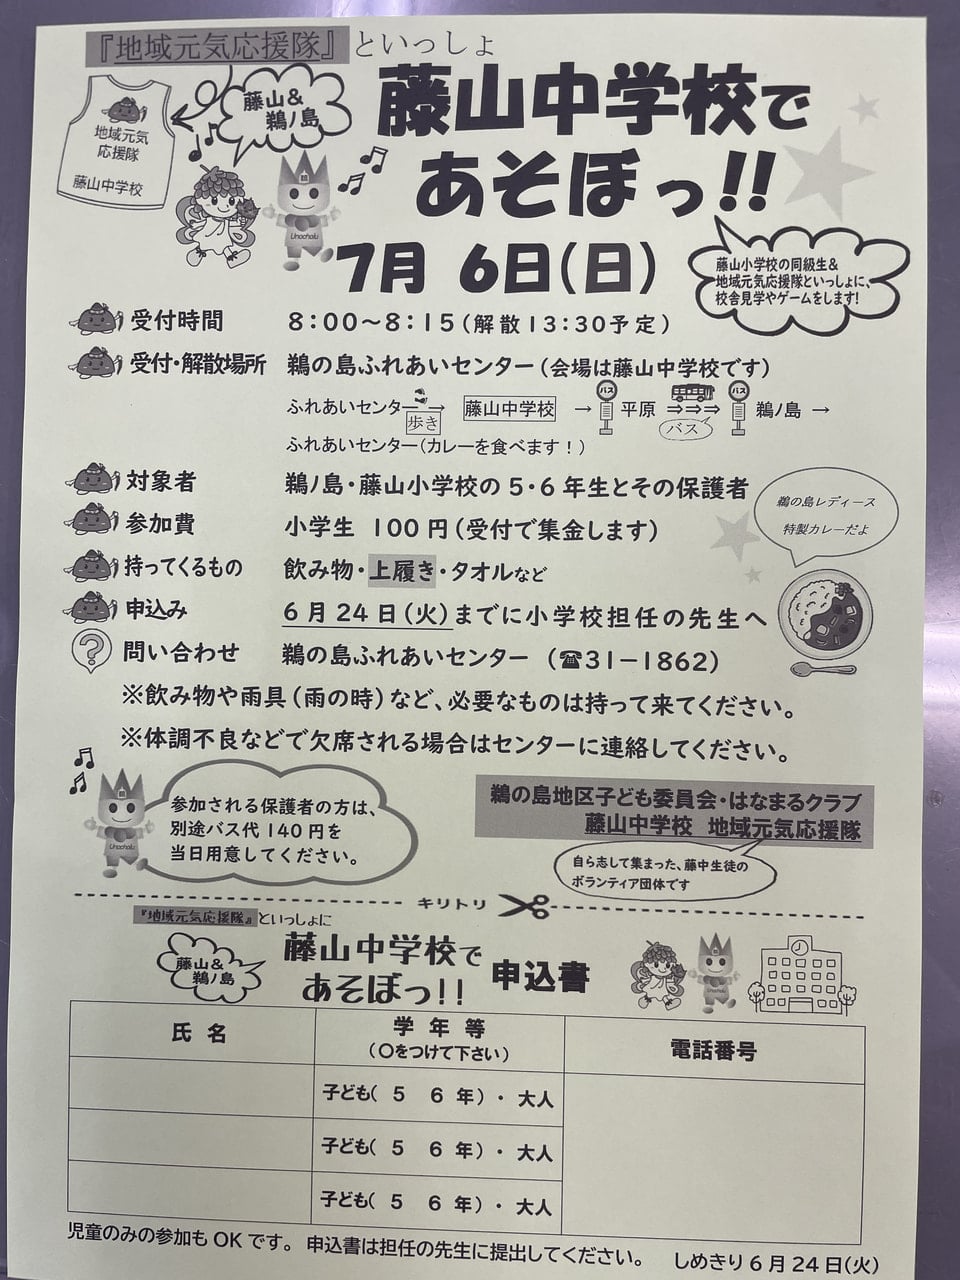 『地域元気応援隊』といっしょ
地域元気
応援隊
藤山中学校
藤山&
鵜ノ島
藤山中学校で
あそぼっ!!
7月 6日(日)
藤山小学校の同級生&
地域元気応援隊といっしょに、
校舎見学やゲームをします!
受付時間 8:00～8:15(解散13:30予定)
受付・解散場所 鵜の島ふれあいセンター(会場は藤山中学校です)
ふれあいセンター → 藤山中学校 → バス 平原 ⇒⇒⇒ バス 鵜ノ島 →
歩き バス
ふれあいセンター(カレーを食べます!)
対象者 鵜ノ島・藤山小学校の5・6年生とその保護者
参加費 小学生 100円(受付で集金します)
鵜の島レディース
特製カレーだよ
持ってくるもの 飲み物・上履き・タオルなど
申込み 6月24日(火)までに小学校担任の先生へ
? 問い合わせ 鵜の島ふれあいセンター (☎31-1862)
※飲み物や雨具(雨の時)など、必要なものは持って来てください。
※体調不良などで欠席される場合はセンターに連絡してください。
参加される保護者の方は、
別途バス代140円を
当日用意してください。
鵜の島地区子ども委員会・はなまるクラブ
藤山中学校 地域元気応援隊
自ら志して集まった、藤中生徒の
ボランティア団体です
キリトリ
『地域元気応援隊』といっしょに
藤山&
鵜ノ島
藤山中学校で
あそぼっ!! 申込書
氏名 学年等 電話番号
(〇をつけて下さい)
子ども( 5 6 年)・ 大人
子ども( 5 6 年)・ 大人
子ども( 5 6 年)・ 大人
児童のみの参加もOKです。申込書は担任の先生に提出してください。 しめきり6月24日(火)